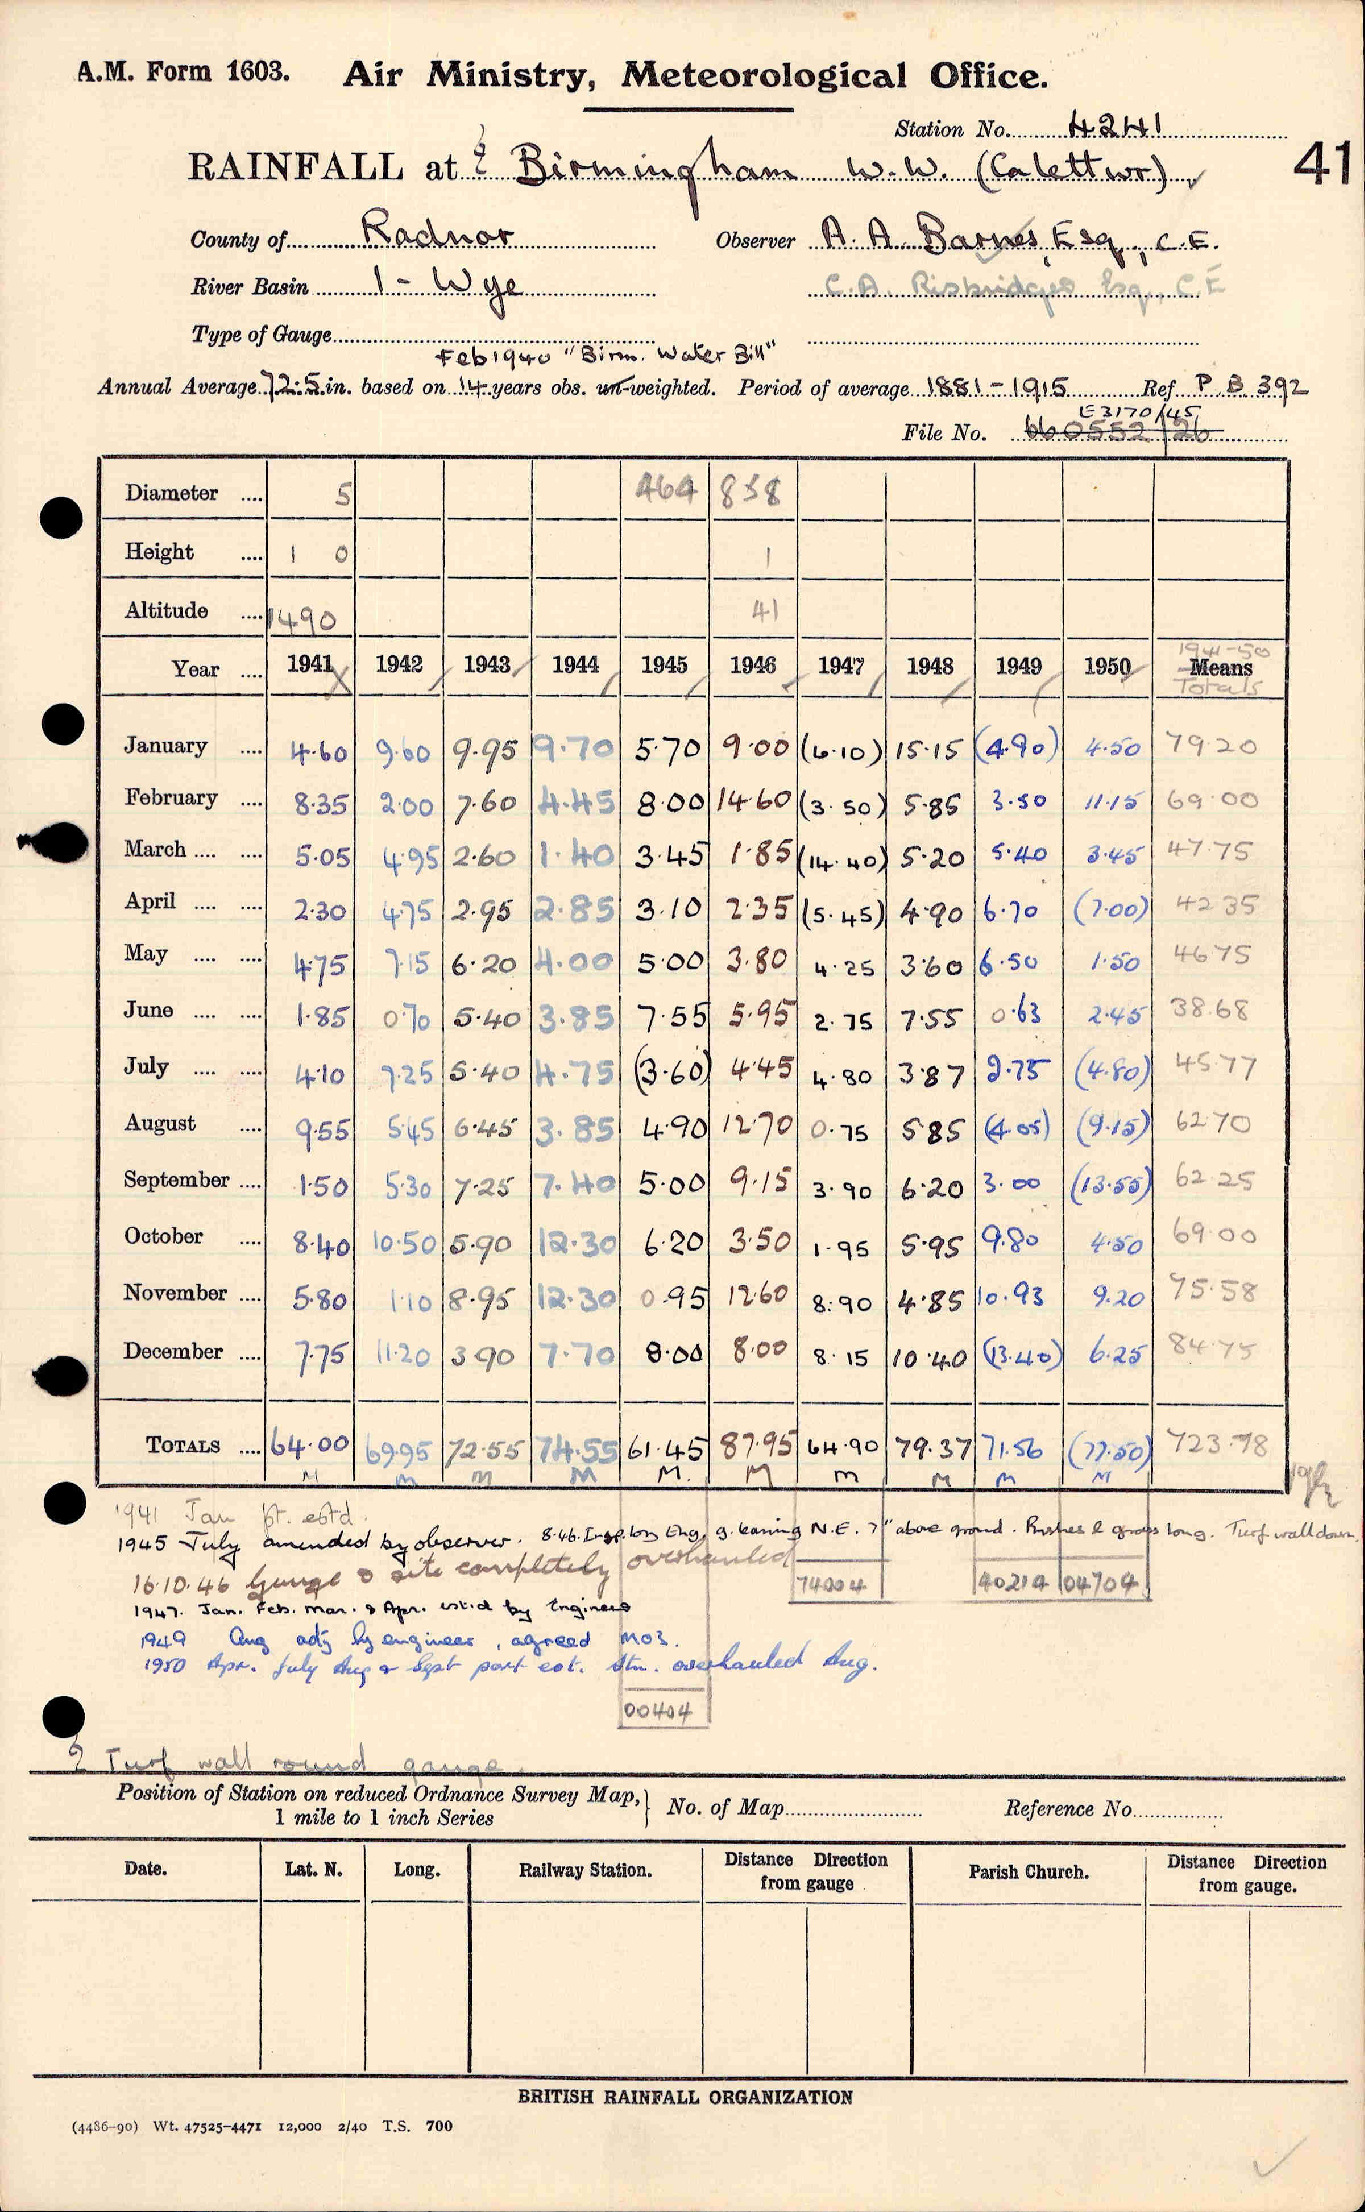 A.M. Form 1603. Air Ministry, Meteorological Office.
Station No. 4241
RAINFALL at Birmingham W.W. (Calettwr) 41
County of Radnor Observer A. A. Barnes, Esq., C.E.
River Basin 1 - Wye C.A. Risbridger Esq., C.E
Type of Gauge
Feb 1940 "Birm. Water Bill"
Annual Average 72.5 in. based on 14 years obs. un-weighted. Period of average 1881-1915 Ref P.B. 392
E3170/45
File No. 660552/26
Diameter .... 5 464 838
Height .... 1 0 1
Altitude .... 1490 41
Year .... 1941 1942 1943 1944 1945 1946 1947 1948 1949 1950 1941-50 Means Totals
January .... 4.60 9.60 9.95 9.70 5.70 9.00 (6.10) 15.15 (4.90) 4.50 79.20
February .... 8.35 2.00 7.60 4.45 8.00 14.60 (3.50) 5.85 3.50 11.15 69.00
March .... .... 5.05 4.95 2.60 1.40 3.45 1.85 (14.40) 5.20 5.40 3.45 47.75
April .... .... 2.30 4.75 2.95 2.85 3.10 2.35 (5.45) 4.90 6.70 (7.00) 42 35
May .... .... 4.75 7.15 6.20 4.00 5.00 3.80 4.25 3.60 6.50 1.50 46 75
June .... .... 1.85 0.70 5.40 3.85 7.55 5.95 2.75 7.55 0.63 2.45 38.68
July .... .... 4.10 7.25 5.40 4.75 (3.60) 4.45 4.80 3.87 2.75 (4.80) 45.77
August .... 9.55 5.45 6.45 3.85 4.90 12.70 0.75 5.85 (4.05) (9.15) 62.70
September .... 1.50 5.30 7.25 7.40 5.00 9.15 3.90 6.20 3.00 (13.55) 62.25
October .... 8.40 10.50 5.90 12.30 6.20 3.50 1.95 5.95 9.80 4.50 69.00
November .... 5.80 1.10 8.95 12.30 0.95 12.60 8.90 4.85 10.93 9.20 75.58
December .... 7.75 11.20 3.90 7.70 8.00 8.00 8.15 10.40 (13.40) 6.25 84.75
TOTALS .... 64.00 69.95 72.55 74.55 61.45 87.95 64.90 79.37 71.56 (77.50) 723.78
M M M M M. M M M M M
1941 Jan pt. estd.
1945 July amended by observer. 8.46. Insp. by Eng. g. leaning N.E. 7" above ground. Rushes & grass long. Turf wall down.
16.10.46 Gauge & site completely overhauled
74004 40214 04704
1947. Jan. Feb. Mar. & Apr. estd by Engineer
1949 Aug adj by engineer, agreed MO3.
1950 Apr. July Aug & Sept part est. Stn. overhauled Aug.
00404
Turf wall round gauge.
Position of Station on reduced Ordnance Survey Map, 1 mile to 1 inch Series } No. of Map Reference No.
Date. Lat. N. Long. Railway Station. Distance Direction from gauge Parish Church. Distance Direction from gauge.
BRITISH RAINFALL ORGANIZATION
(4486-90) Wt. 47525-4471 12,000 2/40 T.S. 700